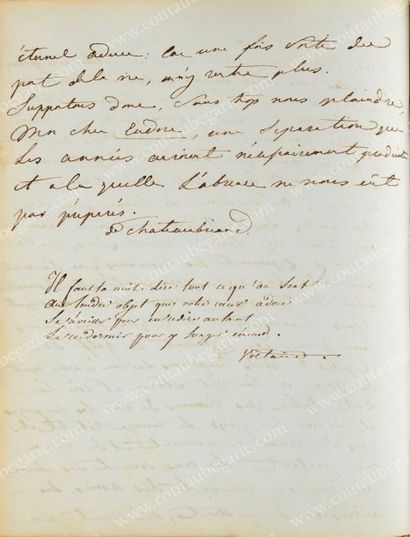 éternel adieu: Car une fois sorti du
port de la vie, on n'y rentre plus.
Supportons donc, sans trop nous plaindre,
Mon cher Eudore, une separation que
les années auroient nécessairement produite
et a la quelle l'absence ne nous eût
pas préparés.
de Chateaubriand.
Il faut la nuit dire tout ce qu'on sent
au tendre objet que votre cœur adore
Se réveiller pour en redire autant
Se rendormir pour y songer encore.
Voltaire.
www.coutaubegarie.com